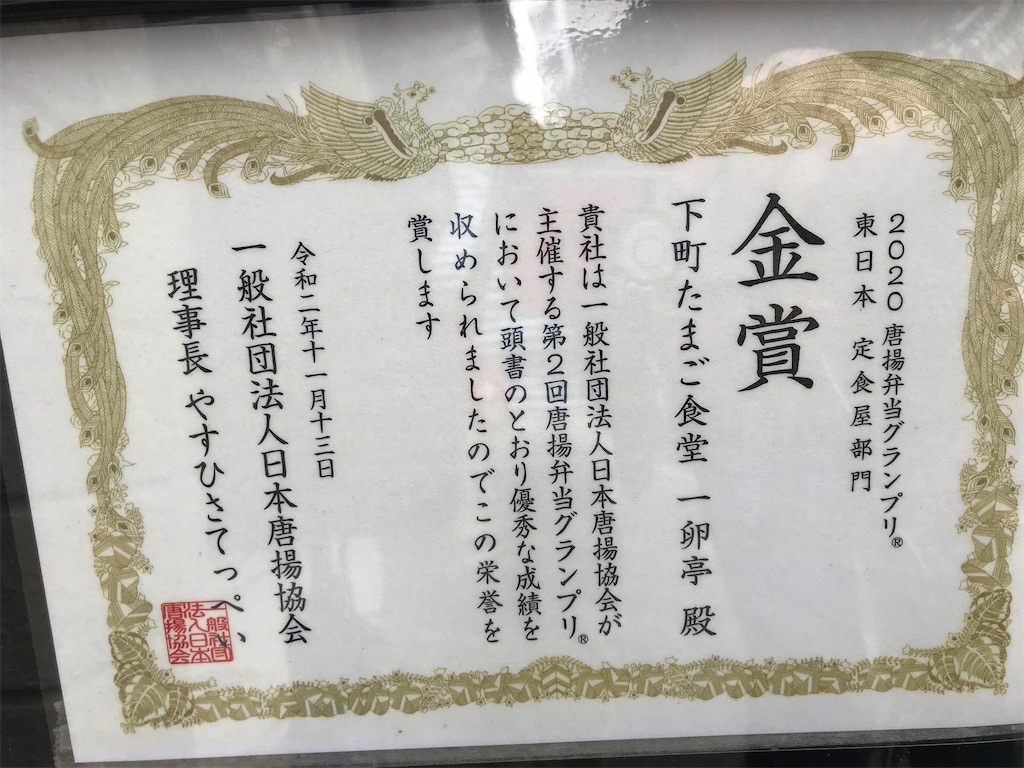 2020 唐揚弁当グランプリ®
東日本 定食屋部門
金賞
下町たまご食堂 一卵亭 殿
貴社は一般社団法人日本唐揚協会が
主催する第2回唐揚弁当グランプリ®
において頭書のとおり優秀な成績を
収められましたのでこの栄誉を
賞します
令和二年十一月十三日
一般社団法人日本唐揚協会
理事長 やすひさてっぺい
一般社団
法人日本
唐揚協会